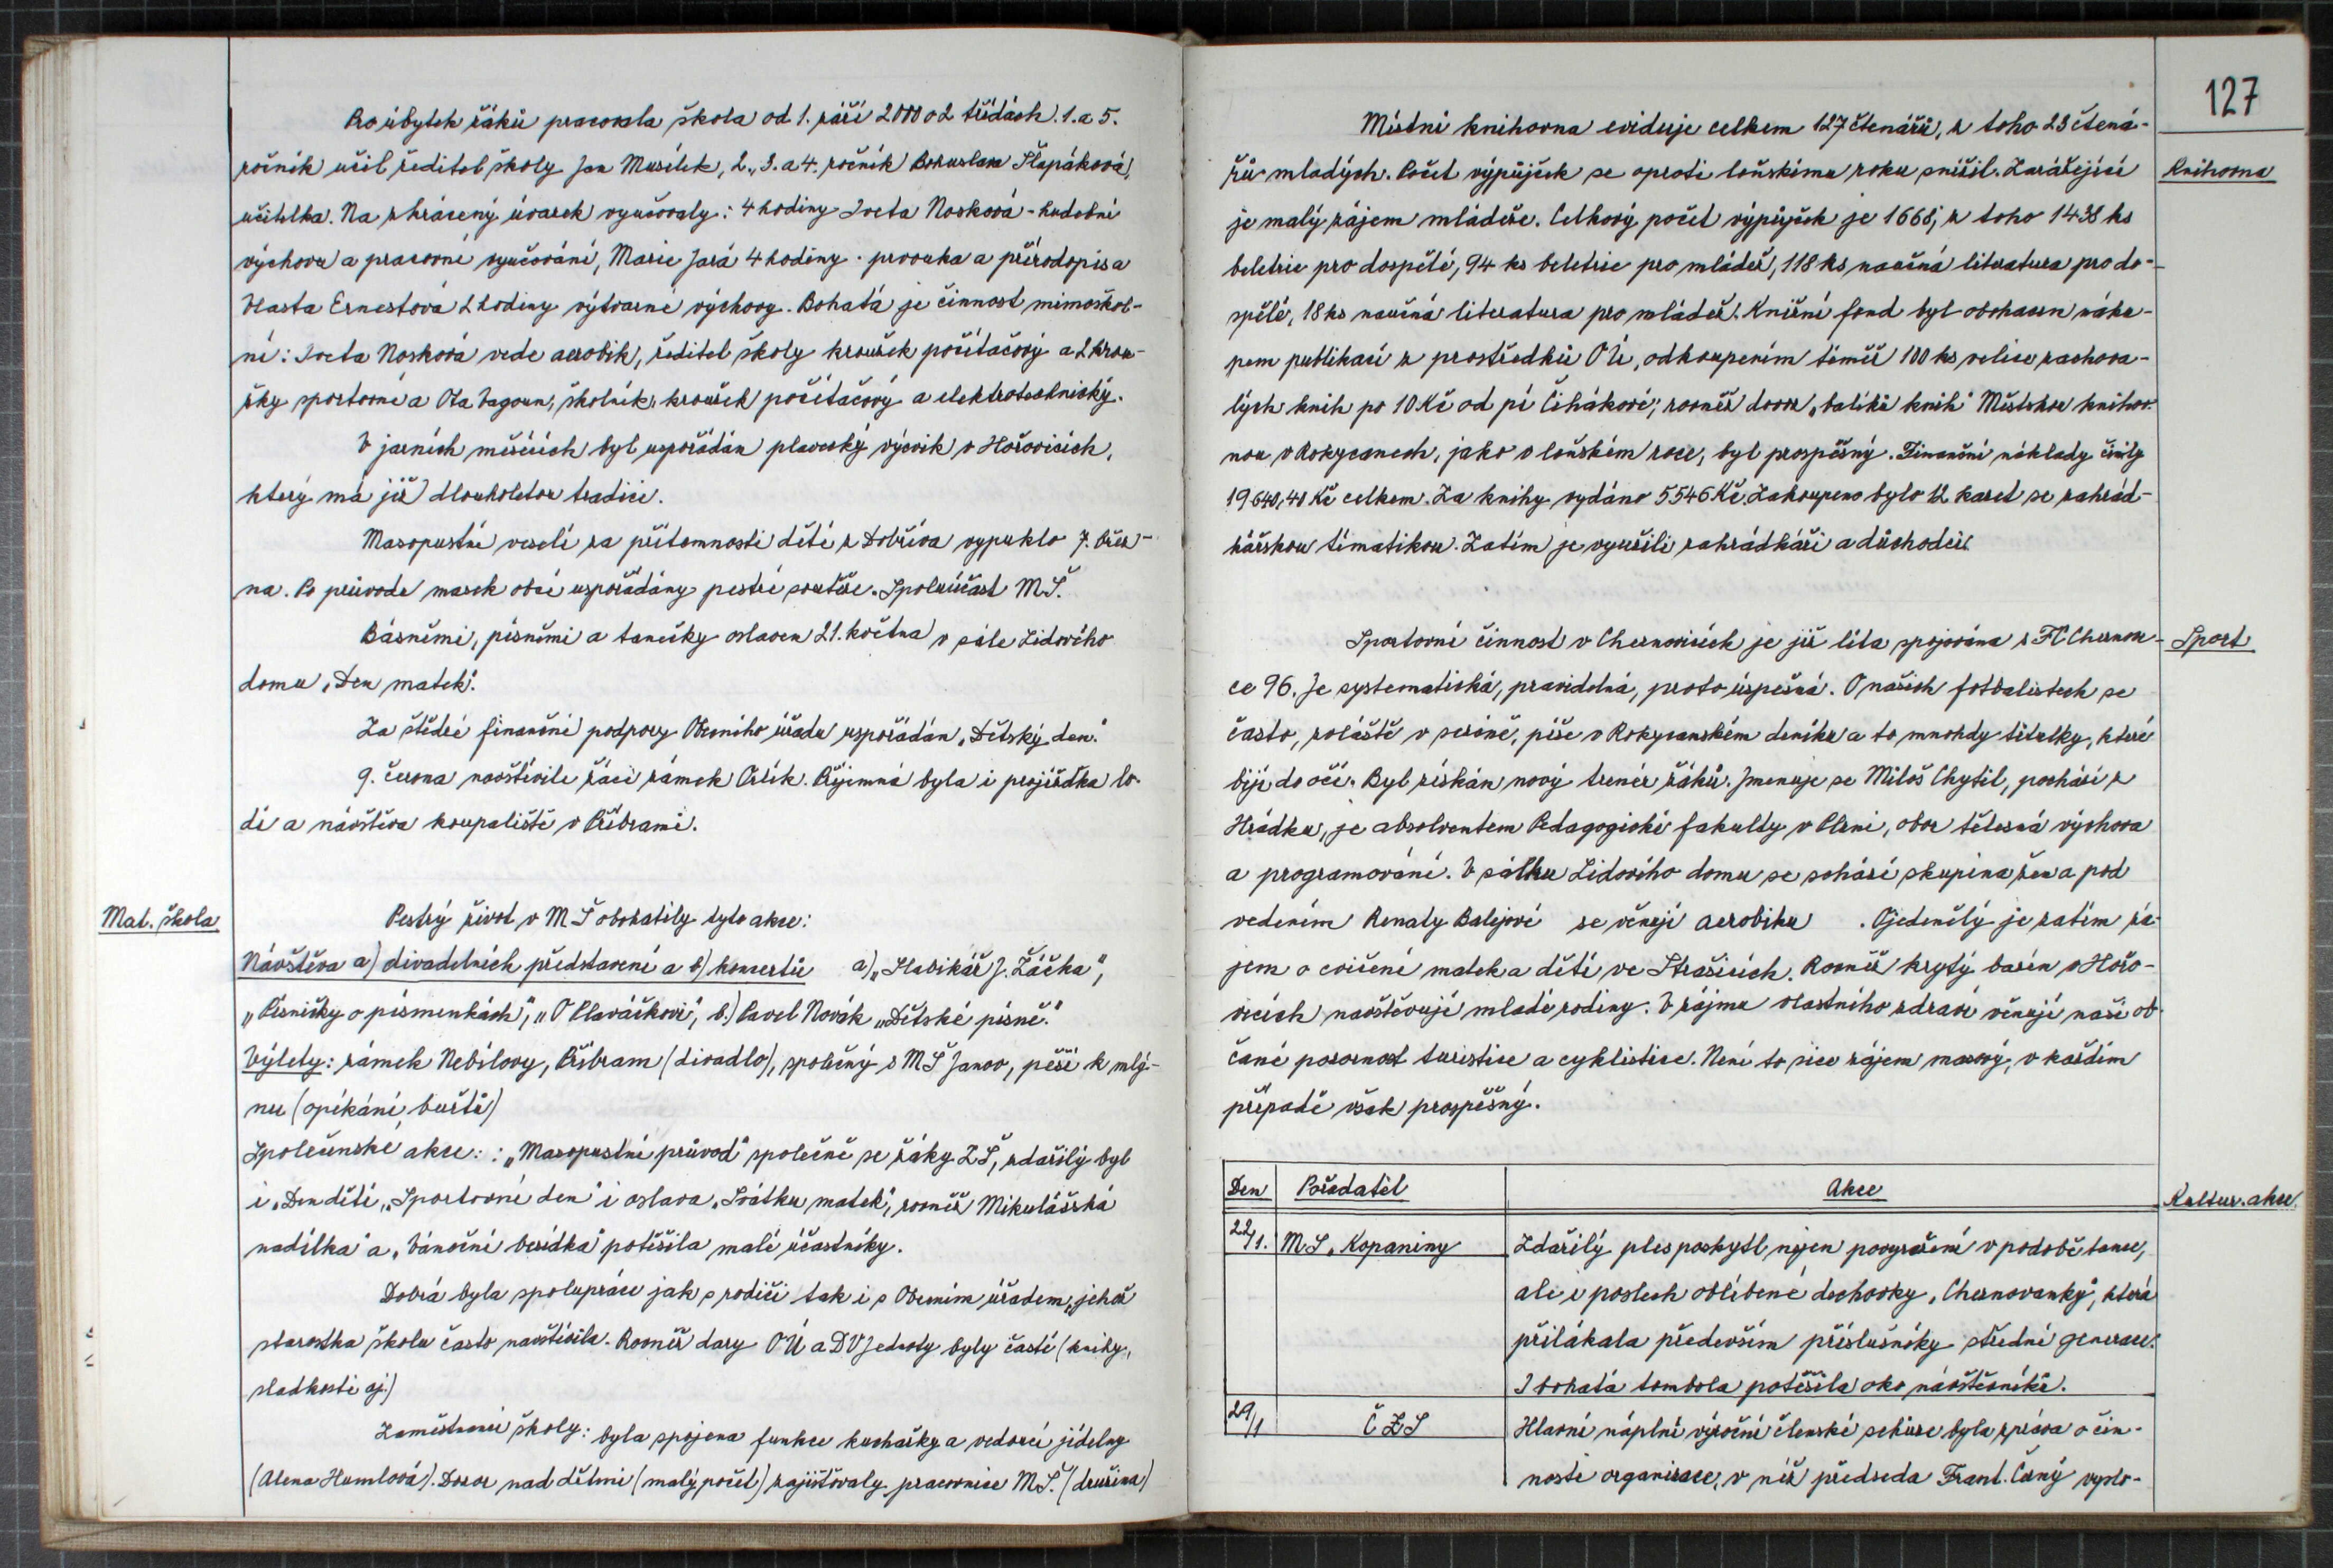 Pro úbytek žáků pracovala škola od 1. září 2000 o 2 třídách. 1. a 5.
ročník učil ředitel školy Jan Musílek, 2., 3. a 4. ročník Bohuslava Štěpáková,
učitelka. Na zkrácený úvazek vyučovaly: 4 hodiny Iveta Nosková - hudební
výchovu a pracovní vyučování, Marie Jará 4 hodiny - prvouka a přírodopis a
Vlasta Ernestová 2 hodiny výtvarné výchovy. Bohatá je činnost mimoškol-
ní: Iveta Nosková vede aerobik, ředitel školy kroužek počítačový a 2 krou-
žky sportovní a Ota Vagoun, školník, kroužek počítačový a elektrotechnický.
V jarních měsících byl uspořádán plavecký výcvik v Hořovicích,
který má již dlouholetou tradici.
Masopustní veselí za přítomnosti dětí z Dobříva vypuklo 7. břez-
na. Po průvodu masek obcí uspořádány pestré soutěže. Spoluúčast MŠ.
Básněmi, písněmi a tanečky oslaven 21. května v sále Lidového
domu „Den matek".
Za štědré finanční podpory Obecního úřadu uspořádán „Dětský den".
9. června navštívili žáci zámek Orlík. Příjemná byla i projížďka lo-
dí a návštěva koupaliště v Příbrami.
Mat. škola
Pestrý život v MŠ obohatily tyto akce:
Návštěva a) divadelních představení a b) koncertů a) „Slabikář J. Žáčka",
„Písničky o písmenkách", „O Plaváčkovi", b.) Pavel Novák „Dětské písně."
Výlety: zámek Nebílovy, Příbram (divadlo), společný s MŠ Janov, pěší k mlý-
nu (opékání buřtů)
Společenské akce: : „Masopustní průvod" společně se žáky ZŠ, zdařilý byl
i „Den dětí, „Sportovní den" i oslava „Svátku matek", rovněž Mikulášská
nadílka" a „Vánoční besídka" potěšila malé účastníky.
Dobrá byla spolupráce jak s rodiči tak i s Obecním úřadem, jehož
starostka školu často navštívila. Rovněž dary OÚ a DV Jednoty byly časté (knihy,
sladkosti aj.)
Zaměstnanci školy: byla spojena funkce kuchařky a vedoucí jídelny
(Alena Humlová). Dozor nad dětmi (malý počet) zajišťovaly pracovnice MŠ. (družina)
127
Knihovna
Místní knihovna eviduje celkem 127 čtenářů, z toho 23 čtená-
řů mladých. Počet výpůjček se oproti loňskému roku snížil. Zarážející
je malý zájem mládeže. Celkový počet výpůjček je 1668, z toho 1438 ks
beletrie pro dospělé, 94 ks beletrie pro mládež, 118 ks naučná literatura pro do-
spělé, 18 ks naučná literatura pro mládež. Knižní fond byl obohacen náku-
pem publikací z prostředků OÚ, odkoupením téměř 100 ks velice zachova-
lých knih po 10 Kč od pí Čihákové; rovněž dovoz „balíků knih" Městskou knihov-
nou v Rokycanech, jako v loňském roce, byl prospěšný. Finanční náklady činily
19 640,40 Kč celkem. Za knihy vydáno 5546 Kč. Zakoupeno bylo 12 kazet se zahrád-
kářskou tématikou. Zatím je využili zahrádkáři a důchodci.
Sport
Sportovní činnost v Cheznovicích je již léta spojována s FC Chezno-
ce 96. Je systematická, pravidelná, proto úspěšná. O našich fotbalistech se
často, zvláště v sezóně, píše v Rokycanském deníku a to mnohdy titulky, které
bijí do očí. Byl získán nový trenér žáků. Jmenuje se Miloš Chytil, pochází z
Hrádku, je absolventem Pedagogické fakulty v Plzni, obor tělesná výchova
a programování. V sálku Lidového domu se schází skupina žen a pod
vedením Renaty Balejové se věnují aerobiku . Ojedinělý je zatím zá-
jem o cvičení matek a dětí ve Strašicích. Rovněž krytý bazén v Hořo-
vicích navštěvují mladé rodiny. V zájmu vlastního zdraví věnují naši ob-
čané pozornost turistice a cyklistice. Není to sice zájem masový, v každém
případě však prospěšný.
Kultur. akce
Den Pořadatel Akce
22/1. M.S. Kopaniny Zdařilý ples poskytl nejen povyražení v podobě tance,
ale i poslech oblíbené dechovky „Cheznovanky", která
přilákala především příslušníky střední generace.
I bohatá tombola potěšila oko návštěvníků.
29/1 ČZS Hlavní náplní výroční členské schůze byla zpráva o čin-
nosti organizace, v níž předseda Frant. Černý vyslo-